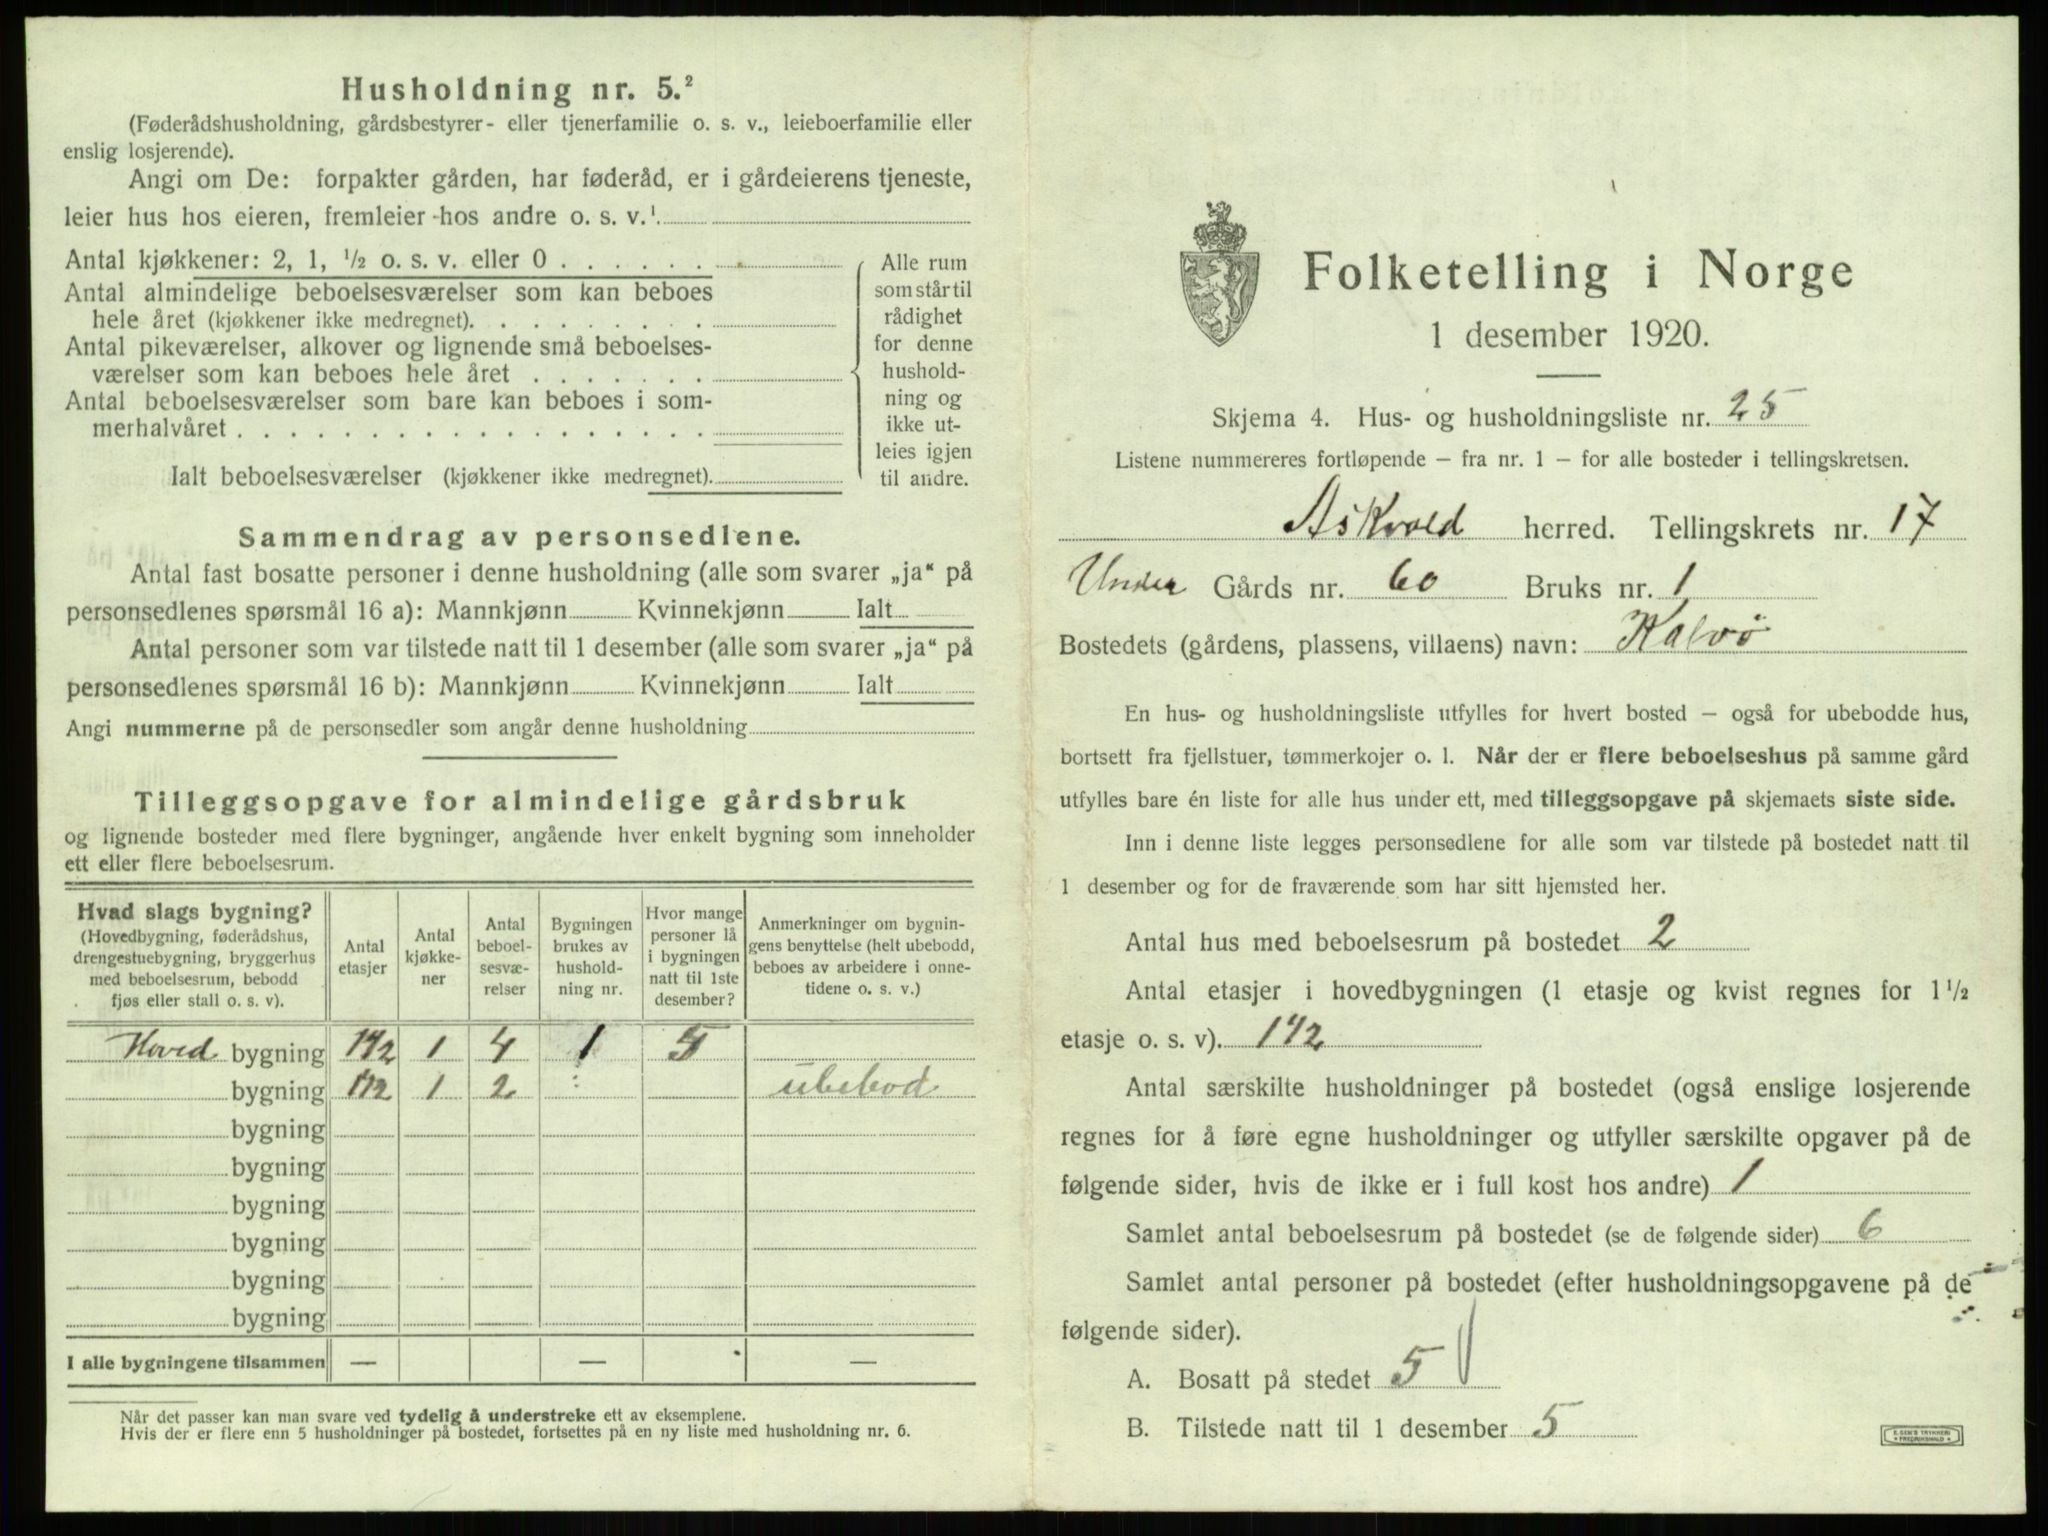 Husholdning nr. 5.²
(Føderådshusholdning, gårdsbestyrer- eller tjenerfamilie o. s. v., leieboerfamilie eller
enslig losjerende).
Angi om De: forpakter gården, har føderåd, er i gårdeierens tjeneste,
leier hus hos eieren, fremleier hos andre o. s. v.¹
Antal kjøkkener: 2, 1, ½ o. s. v. eller 0 . . . . . .
Antal almindelige beboelsesværelser som kan beboes
hele året (kjøkkener ikke medregnet). . . . . . . . .
Antal pikeværelser, alkover og lignende små beboelses-
værelser som kan beboes hele året . . . . . . .
Antal beboelsesværelser som bare kan beboes i som-
merhalvåret . . . . . . . . . . . . . . . . . .
Ialt beboelsesværelser (kjøkkener ikke medregnet).
Alle rum
som står til
rådighet
for denne
hushold-
ning og
ikke ut-
leies igjen
til andre.
Sammendrag av personsedlene.
Antal fast bosatte personer i denne husholdning (alle som svarer „ja“ på
personsedlenes spørsmål 16 a): Mannkjønn Kvinnekjønn Ialt
Antal personer som var tilstede natt til 1 desember (alle som svarer „ja“ på
personsedlenes spørsmål 16 b): Mannkjønn Kvinnekjønn Ialt
Angi nummerne på de personsedler som angår denne husholdning
Tilleggsopgave for almindelige gårdsbruk
og lignende bosteder med flere bygninger, angående hver enkelt bygning som inneholder
ett eller flere beboelsesrum.
Hvad slags bygning?
(Hovedbygning, føderådshus,
drengestuebygning, bryggerhus
med beboelsesrum, bebodd
fjøs eller stall o. s. v).
Antal
etasjer
Antal
kjøkke-
ner
Antal
beboel-
sesvæ-
relser
Bygningen
brukes av
hushold-
ning nr.
Hvor mange
personer lå
i bygningen
natt til 1ste
desember?
Anmerkninger om bygnin-
gens benyttelse (helt ubebodd,
beboes av arbeidere i onne-
tidene o. s. v.)
Hoved bygning 1½ 1 4 1 5
bygning 1½ 1 2 ubebod
bygning
bygning
bygning
bygning
bygning
bygning
I alle bygningene tilsammen — — —
Når det passer kan man svare ved tydelig å understreke ett av eksemplene.
Hvis der er flere enn 5 husholdninger på bostedet, fortsettes på en ny liste med husholdning nr. 6.
Folketelling i Norge
1 desember 1920.
Skjema 4. Hus- og husholdningsliste nr. 25
Listene nummereres fortløpende – fra nr. 1 – for alle bosteder i tellingskretsen.
Askvold herred. Tellingskrets nr. 17
Under Gårds nr. 60 Bruks nr. 1
Bostedets (gårdens, plassens, villaens) navn: Kalvø
En hus- og husholdningsliste utfylles for hvert bosted – også for ubebodde hus,
bortsett fra fjellstuer, tømmerkojer o. l. Når der er flere beboelseshus på samme gård
utfylles bare én liste for alle hus under ett, med tilleggsopgave på skjemaets siste side.
Inn i denne liste legges personsedlene for alle som var tilstede på bostedet natt til
1 desember og for de fraværende som har sitt hjemsted her.
Antal hus med beboelsesrum på bostedet 2
Antal etasjer i hovedbygningen (1 etasje og kvist regnes for 1½
etasje o. s. v). 1½
Antal særskilte husholdninger på bostedet (også enslige losjerende
regnes for å føre egne husholdninger og utfyller særskilte opgaver på de
følgende sider, hvis de ikke er i full kost hos andre) 1
Samlet antal beboelsesrum på bostedet (se de følgende sider) 6
Samlet antal personer på bostedet (efter husholdningsopgavene på de
følgende sider).
A. Bosatt på stedet 5
B. Tilstede natt til 1 desember 5
E. SEM'S TRYKKERI
FREDRIKSHALD